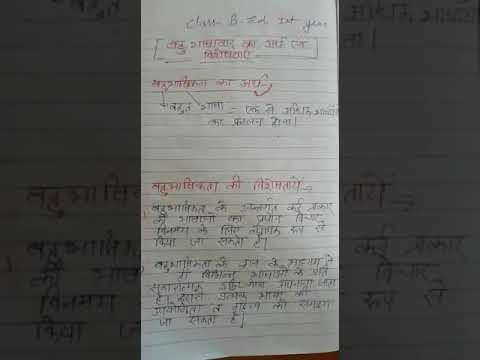 Class B-Ed. Ist year
बहु भाषावाद का अर्थ एवं
विशेषताएँ
बहुभाषिकता का अर्थ
बहुत भाषा - एक से अधिक भाषाओं
का प्रचलन होना।
बहुभाषिकता की विशेषताएँ
बहुभाषिकता के अन्तर्गत कई प्रकार
की भाषाओं का प्रयोग विचार
विनमय के लिए व्यापक रूप से
किया जा सकता है।
बहुभाषिकता के ज्ञान के माध्यम से
ही विभिन्न भाषाओं के प्रति
सकारात्मक
है। इसमें प्रत्येक भाषा की
उपयोगिता व महत्व को समझा
जा सकता है।